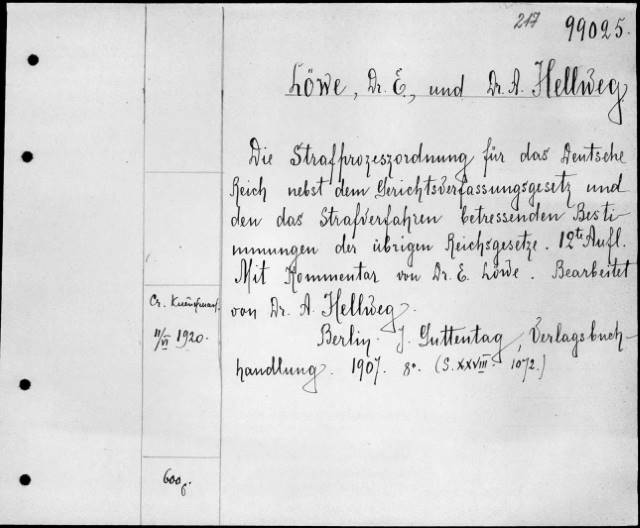 217
99025.
Löwe, Dr. E., und Dr. A. Hellweg
Die Strafprozeszordnung für das Deutsche
Reich nebst dem Gerichtsverfassungsgesetz und
den das Strafverfahren betressenden Besti-
mmungen der übrigen Reichsgesetze. 12te Aufl.
Mit Kommentar von Dr. E. Löwe. Bearbeitet
von Dr. A. Hellweg.
Berlin. J. Guttentag, Verlagsbuch-
handlung. 1907. 8°. (S. XXVIII. 1072.)
Cr.
11/VI 1920.
600